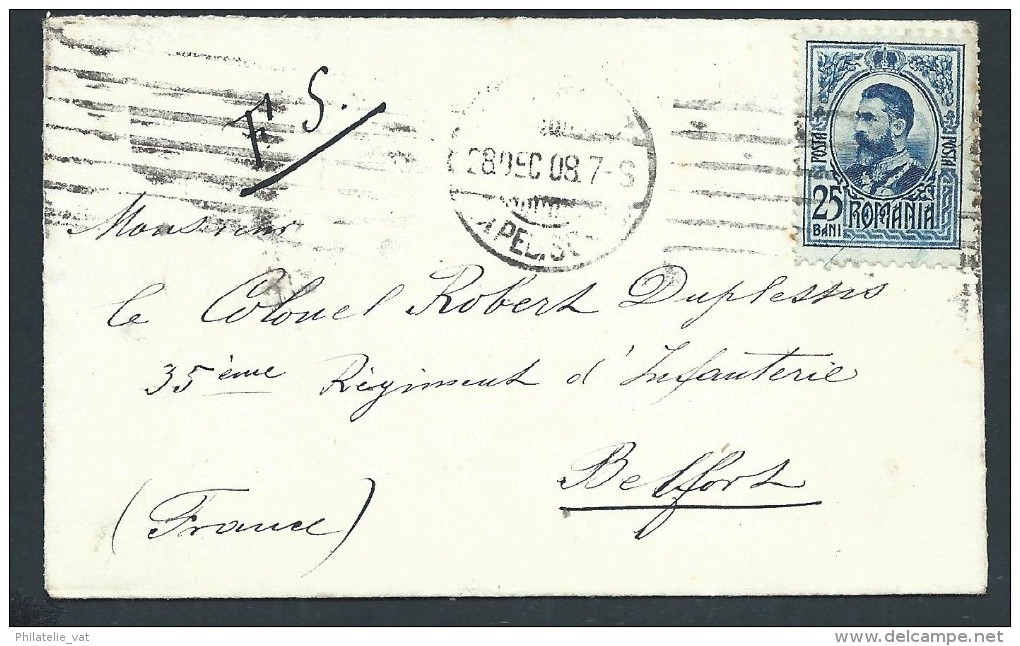 F. S.
28 DEC 08. 7-S
POSTA
POSTA
25
BANI
ROMANIA
Monsieur
le Colonel Robert Duplessis
35ème Régiment d'Infanterie
Belfort
(France)
Philatelie_vat
www.delcampe.net